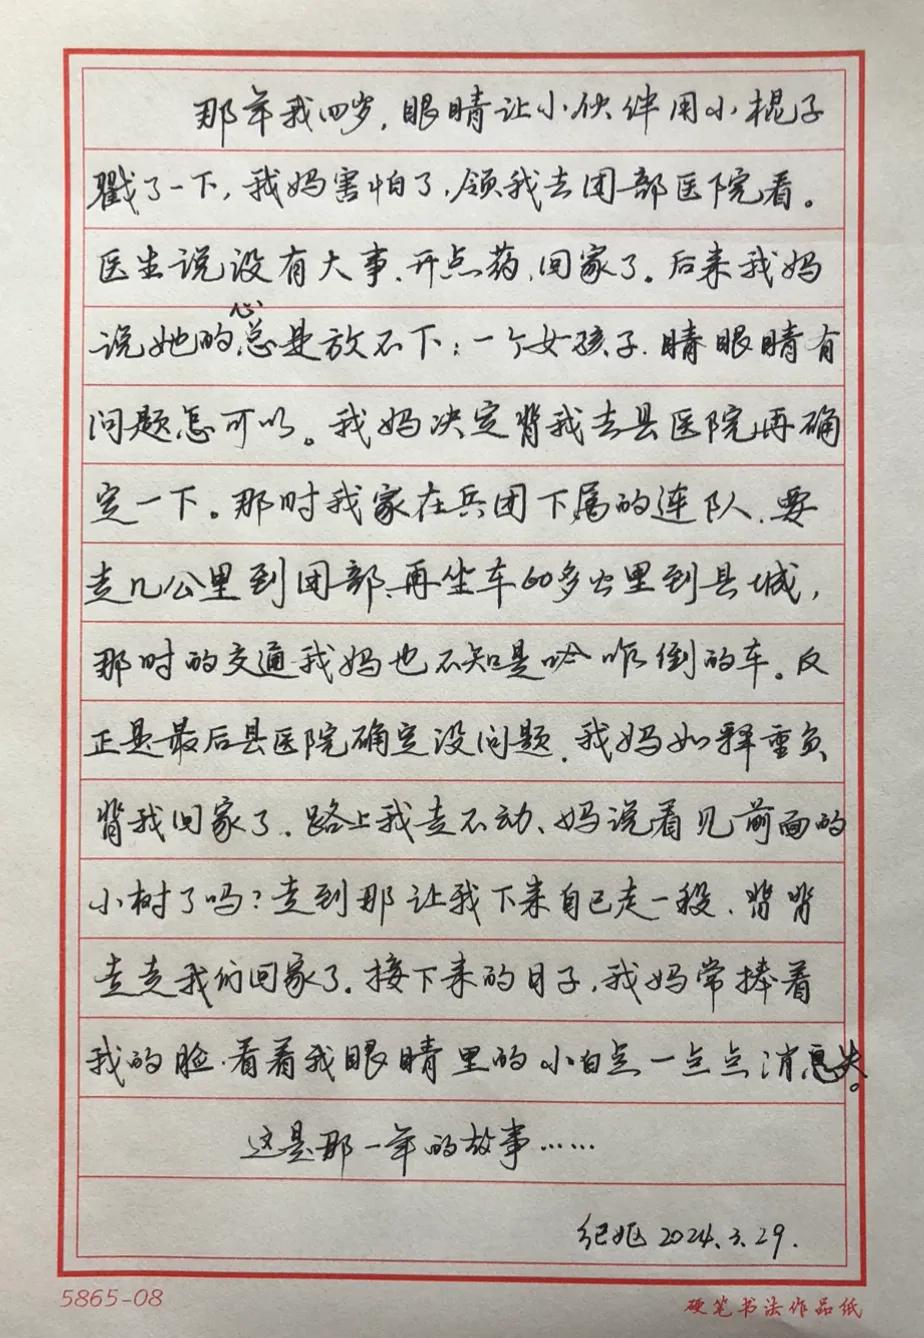 那年我四岁，眼睛让小伙伴用小棍子
戳了一下，我妈害怕了，领我去团部医院看。
医生说没有大事、开点药、回家了。后来我妈
说她的心总是放不下：一个女孩子、睛眼睛有
问题怎可以。我妈决定背我去县医院再确
定一下。那时我家在兵团下属的连队、要
走几公里到团部、再坐车60多公里到县城，
那时的交通我妈也不知是咋倒的车。反
正是最后县医院确定没问题、我妈如释重负
背我回家了、路上我走不动、妈说看见前面的
小树了吗？走到那让我下来自己走一段、背背
走走我们回家了。接下来的日子，我妈常捧着
我的脸、看着我眼睛里的小白点一点点消息失。
这是那一年的故事……
纪 2024.3.29.
5865-08
硬笔书法作品纸